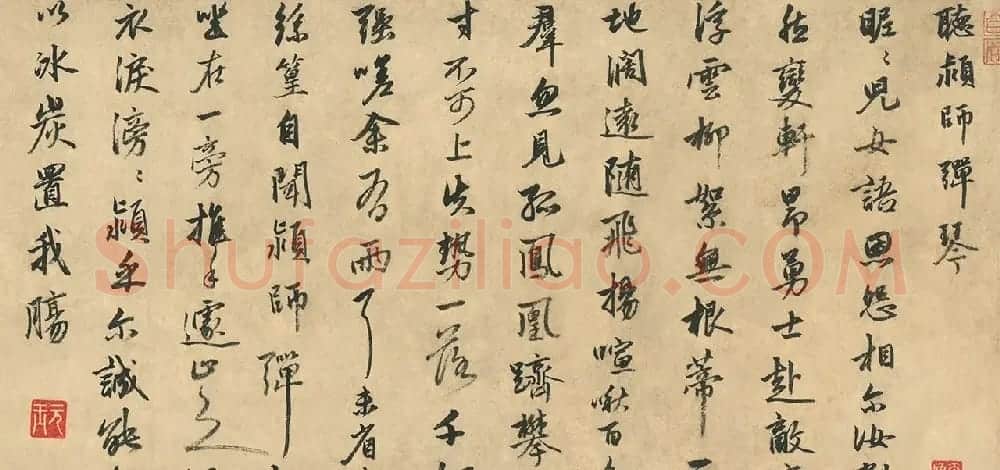 聽潁師彈琴
昵〻兒女語恩怨相爾汝
然變軒昂勇士赴敵
浮雲柳絮無根蒂
地闊遠隨飛揚喧啾百
羣忽見孤鳳凰躋攀
寸不可上失勢一落千
強嗟余有兩耳未省
絲篁自聞潁師彈
坐在一旁推手遽止之
衣淚滂〻潁乎爾誠能
以冰炭置我腸
Shufaziliao.COM